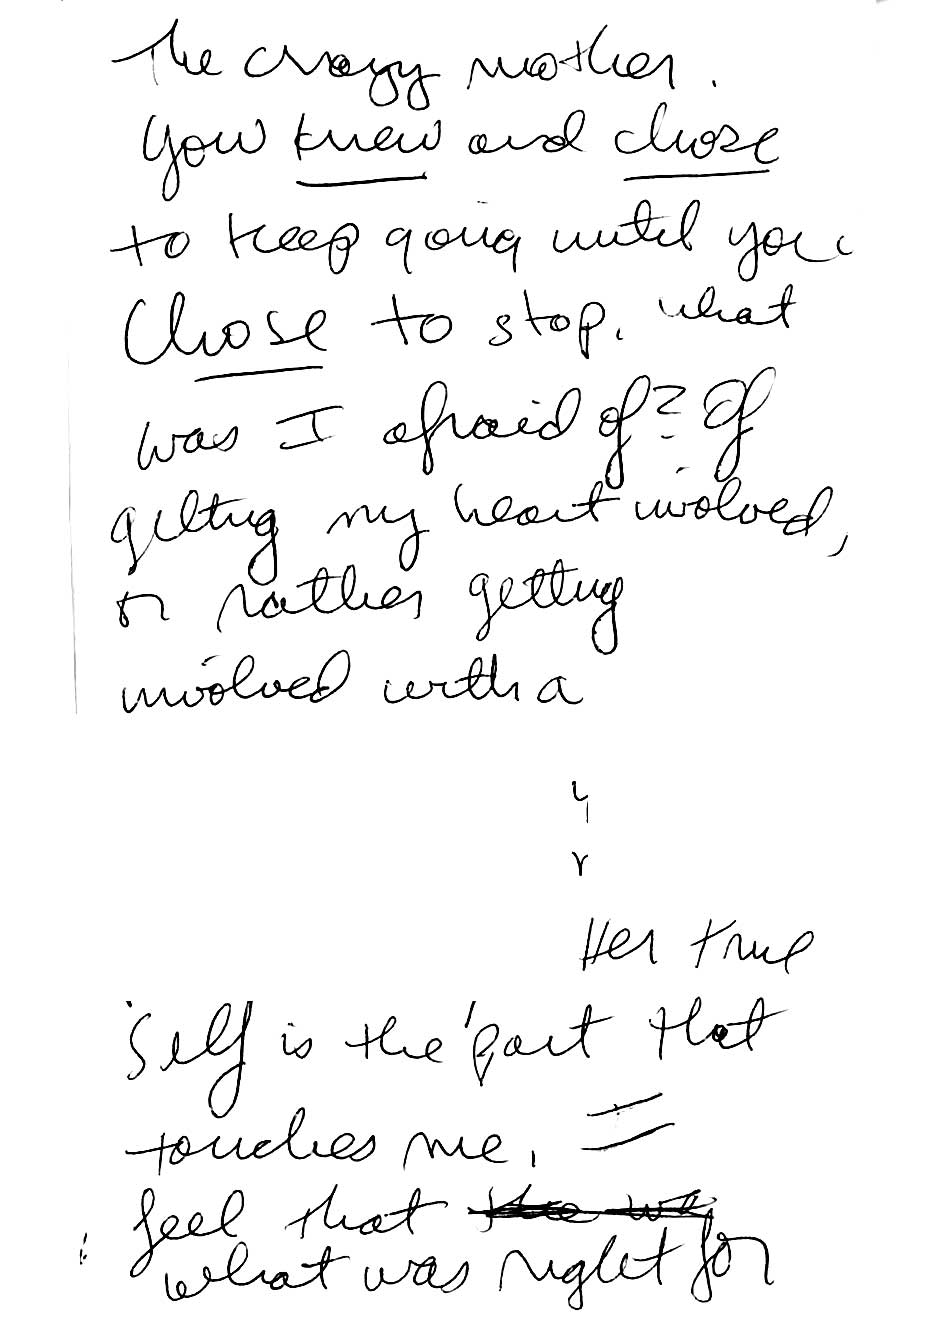 the crazy mother.
You knew and chose
to keep going until you
chose to stop. What
was I afraid of? Of
getting my heart involved,
or rather getting
involved with a
Her true
self is the part that
touches me.
feel that
what was right for